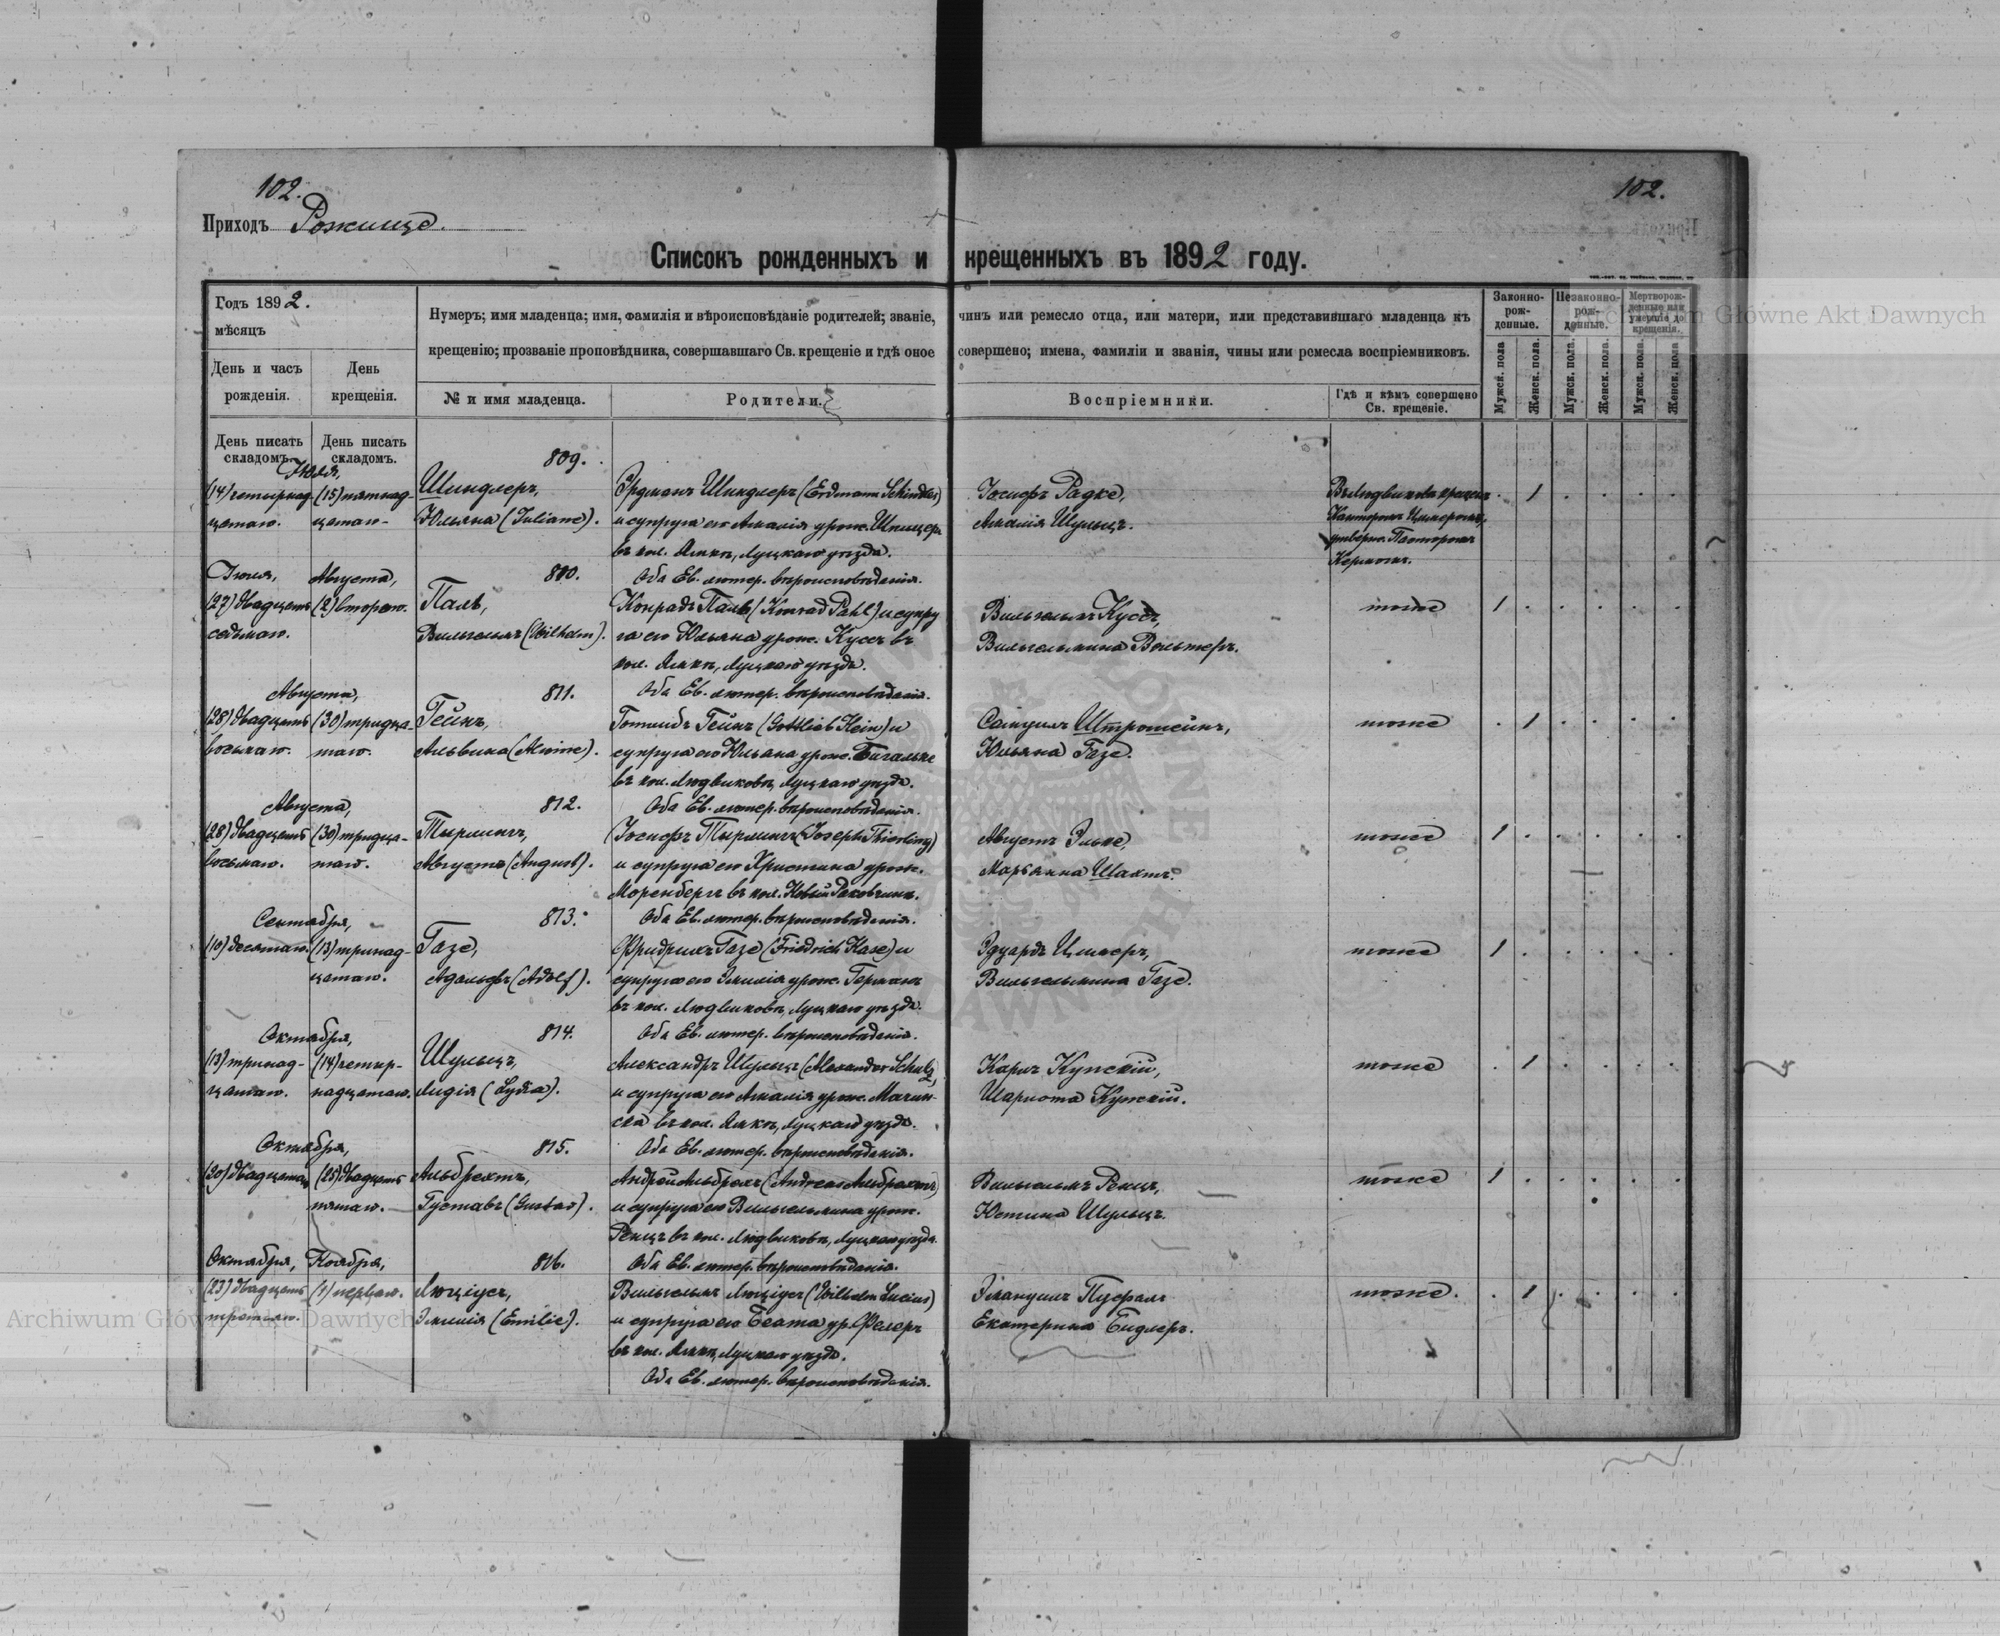 102.
102.
Приходъ Рожище.
Списокъ рожденныхъ и крещенныхъ въ 1892 году.
Годъ 1892.
мѣсяцъ
День и часъ рожденія.
День крещенія.
Нумеръ; имя младенца; имя, фамилія и вѣроисповѣданіе родителей; званіе, чинъ или ремесло отца, или матери, или представившаго младенца къ
крещенію; прозваніе проповѣдника, совершавшаго Св. крещеніе и гдѣ оное совершено; имена, фамиліи и званія, чины или ремесла воспріемниковъ.
№ и имя младенца.
Родители.
Воспріемники.
Гдѣ и кѣмъ совершено Св. крещеніе.
Законно-рож-денные.
Незаконно-рож-денные.
Мертворож-денные или умершіе до крещенія.
Мужск. пола
Женск. пола.
Мужск. пола.
Женск. пола.
Мужск. пола.
Женск. пола
День писать складомъ.
День писать складомъ.
Іюля,
809.
(14) четырнад- (15) пятнад- Шиндлеръ, Эрдманъ Шиндлеръ (Erdmann Schindler) Іосифъ Радке, 1
цатаго. цатаго. Юльяна (Juliane). и супруга его Амалія урож. Шпицеръ Амалія Шульцъ. Канторомъ
въ кол. Ямкѣ, Луцкаго уѣзда. утвержд. Пасторомъ
Керномъ.
Іюля, Августа, 810. Оба Ев. лютер. вѣроисповѣданія.
(27) двадцать (2) втораго. Паль, Конрадъ Паль (Konrad Pahl) и супру Вильгельмъ Куссъ, тоже 1
седьмаго. Вильгельмъ (Wilhelm). га его Юльяна урож. Куссъ въ Вильгельмина Вольтеръ.
кол. Ямкѣ, Луцкаго уѣзда.
Августа, 811. Оба Ев. лютер. вѣроисповѣданія.
(28) двадцать (30) тридца- Гейнъ, Готлибъ Гейнъ (Gottlieb Hein) и Самуилъ Штромейнъ, тоже 1
восьмаго. таго. Альвина (Alwine). супруга его Юльяна урож. Бигальке Юльяна Газе.
въ кол. Людвиковѣ, Луцкаго уѣзда.
Августа, 812. Оба Ев. лютер. вѣроисповѣданія.
(28) двадцать (30) тридца- Тырлингъ, Іосифъ Тырлингъ (Joseph Thierling) Августъ Эльке, тоже 1
восьмаго. таго. Августъ (August). и супруга его Христина урож. Марьянна Шахтъ.
Моренбергъ въ кол. Новый
Сентября, 813. Оба Ев. лютер. вѣроисповѣданія.
(10) десятаго. (13) тринад- Газе, Фридрихъ Газе (Friedrich Hase) и Эдуардъ Циммеръ, тоже 1
цатаго. Адольфъ (Adolf). супруга его Эмилія урож. Германъ Вильгельмина Газе.
въ кол. Людвиковѣ, Луцкаго уѣзда.
Октября, 814. Оба Ев. лютер. вѣроисповѣданія.
(13) тринад- (14) четыр- Шульцъ, Александръ Шульцъ (Alexander Schulz) Карлъ Купскій, тоже 1
цатаго. надцатаго. Лидія (Lydia). и супруга его Амалія урож. Мачин- Шарлота Купскій.
ска въ кол. Ямкѣ, Луцкаго уѣзда.
Октября, 815. Оба Ев. лютер. вѣроисповѣданія.
(20) двадцатаго (25) двадцать Альбрехтъ, Андрей Альбрехтъ (Andreas Альбрехтъ) Вильгельмъ Ренцъ, тоже 1
пятаго. Густавъ (Gustav). и супруга его Вильгельмина урож. Юстина Шульцъ.
Ренцъ въ кол. Людвиковѣ, Луцкаго уѣзда.
Октября, Ноября, 816. Оба Ев. лютер. вѣроисповѣданія.
(23) двадцать (1) перваго. Люціусъ, Вильгельмъ Люціусъ (Wilhelm Lucius) Эмануилъ тоже. 1
третьяго. Эмилія (Emilie). и супруга его Беата ур. Фелеръ Екатерина Бидлеръ.
въ кол. Ямкѣ, Луцкаго уѣзда.
Оба Ев. лютер. вѣроисповѣданія.
Archiwum Główne Akt Dawnych
Archiwum Główne Akt Dawnych